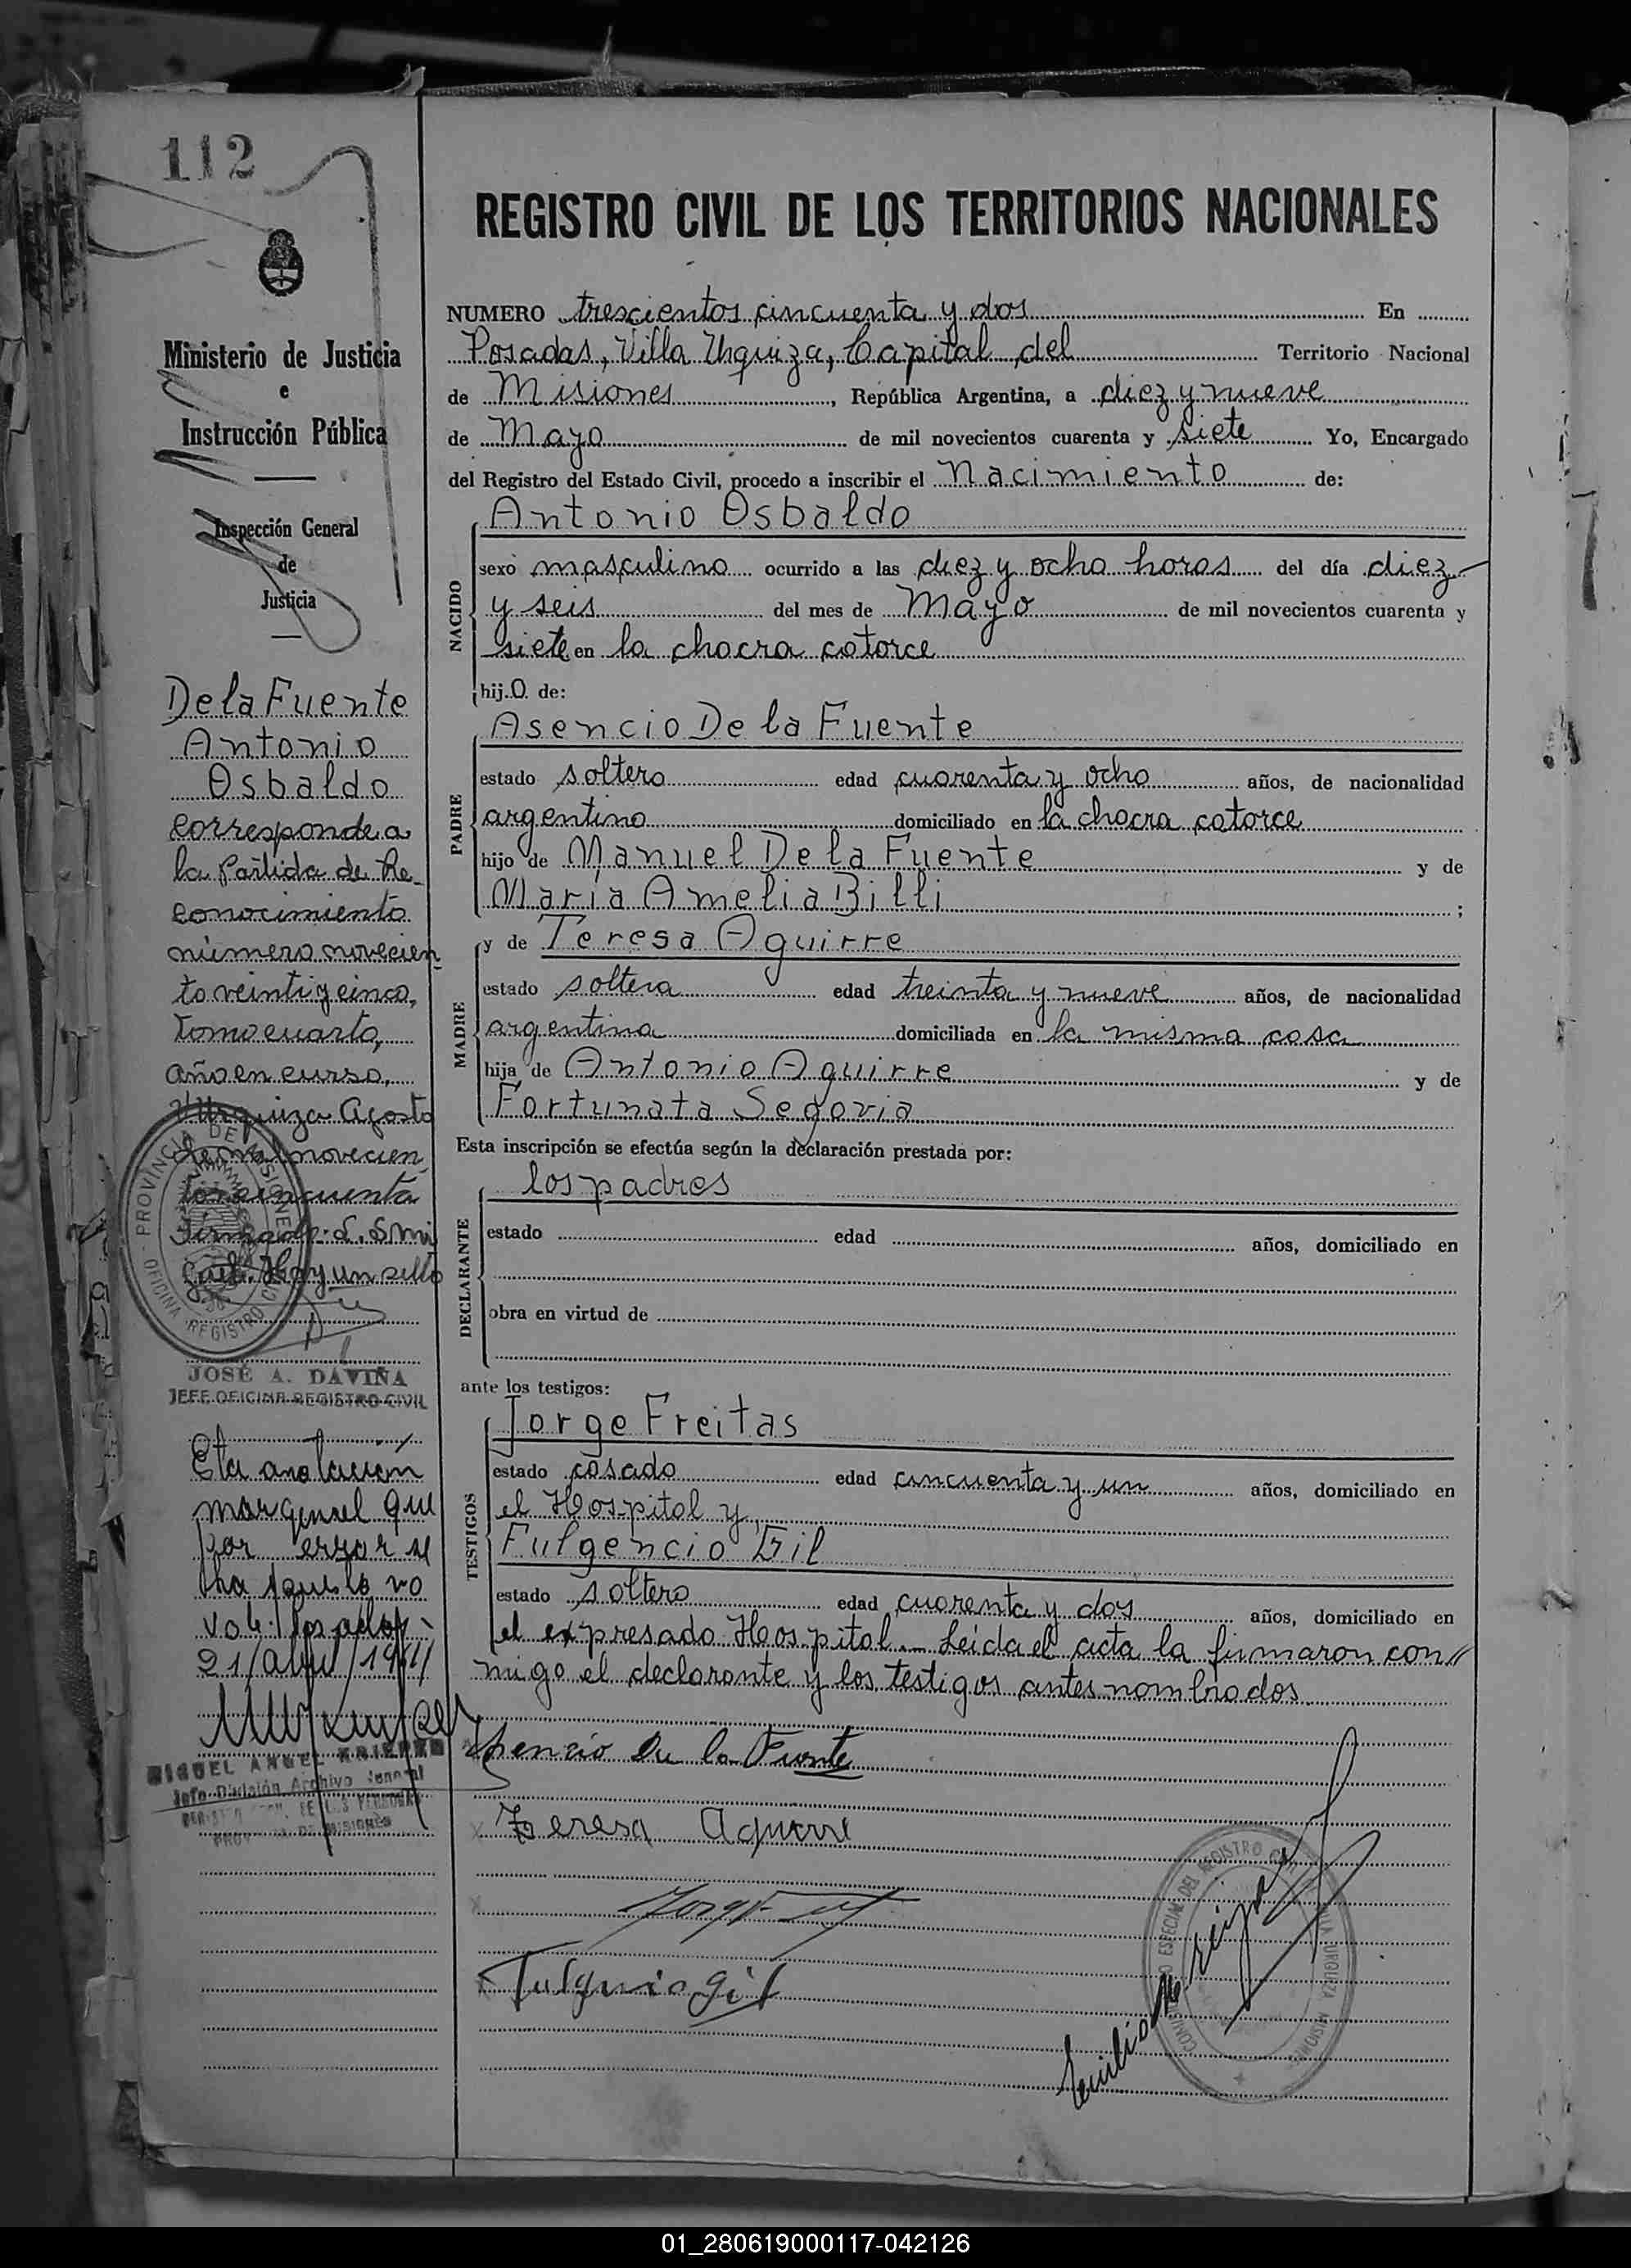 112
Ministerio de Justicia
e
Instrucción Pública
Inspección General
de
Justicia
De la Fuente
Antonio
Osbaldo
corresponde a
la Partida de Re-
conocimiento
número novecien
to veinti y cinco,
tomo cuarto,
año en curso,
V. Urquiza Agosto
de mil novecien
tos cincuenta
Firmado: S. Smi
Hay un sello
PROVINCIA DE MISIONES
OFICINA REGISTRO CIVIL
JOSÉ A. DAVIÑA
JEFE OFICINA REGISTRO CIVIL
Eta anotación
marginal que
por error se
ha puesto no
vale. Posadas
21/abril/19
MIGUEL ANGEL
Jefe División Archivo General
PROV. DE MISIONES
REGISTRO CIVIL DE LOS TERRITORIOS NACIONALES
NUMERO trescientos cincuenta y dos En
Posadas, Villa Urquiza, Capital del Territorio Nacional
de Misiones, República Argentina, a diez y nueve
de Mayo de mil novecientos cuarenta y siete Yo, Encargado
del Registro del Estado Civil, procedo a inscribir el Nacimiento de:
Antonio Osbaldo
NACIDO
sexo masculino ocurrido a las diez y ocho horas del día diez
y seis del mes de Mayo de mil novecientos cuarenta y
siete en la chacra catorce
hijo de:
Asencio De la Fuente
PADRE
estado soltero edad cuarenta y ocho años, de nacionalidad
argentino domiciliado en la chacra catorce
hijo de Manuel De la Fuente y de
María Amelia Billi ;
y de Teresa Aguirre
MADRE
estado soltera edad treinta y nueve años, de nacionalidad
argentina domiciliada en la misma casa
hija de Antonio Aguirre y de
Fortunata Segovia
Esta inscripción se efectúa según la declaración prestada por:
los padres
DECLARANTE
estado edad años, domiciliado en
obra en virtud de
ante los testigos:
Jorge Freitas
TESTIGOS
estado casado edad cincuenta y un años, domiciliado en
el Hospital y
Fulgencio Gil
estado soltero edad cuarenta y dos años, domiciliado en
el expresado Hospital.- Leída el acta la firmaron con//
migo el declarante y los testigos antes nombrados
Asencio De la Fuente
Teresa Aguirre
Fulgencio Gil
ESPECIAL DEL REGISTRO CIVIL VILLA URQUIZA MISIONES
Emilio
01_280619000117-042126